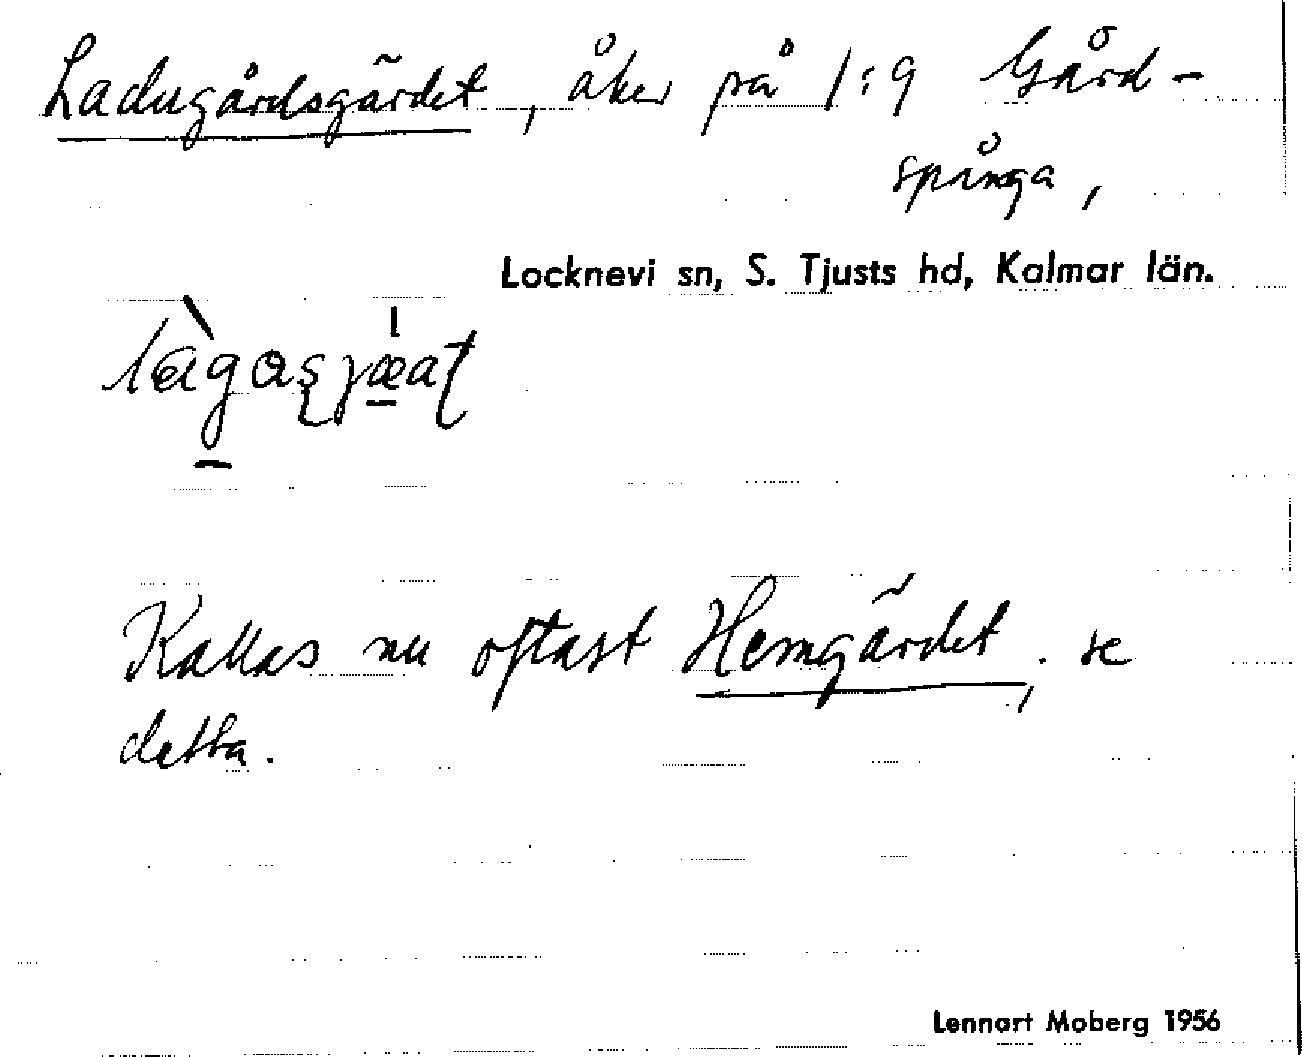 Ladugårdsgärdet, åker på 1:9 Gård-
spånga,
Locknevi sn, S. Tjusts hd, Kalmar län.
Kallas nu oftast Hemgärdet, se
detta.
Lennart Moberg 1956